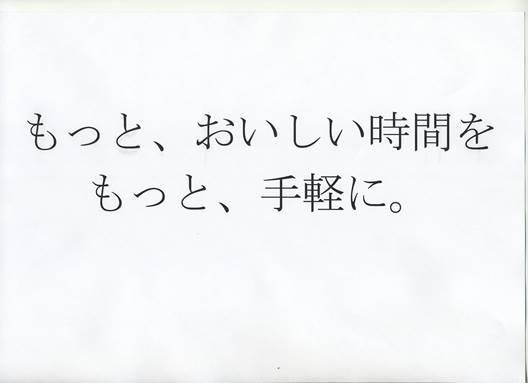 もっと、おいしい時間を
もっと、手軽に。